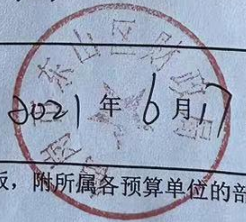 东山区财政局
2021年6月17
板，附所属各预算单位的部